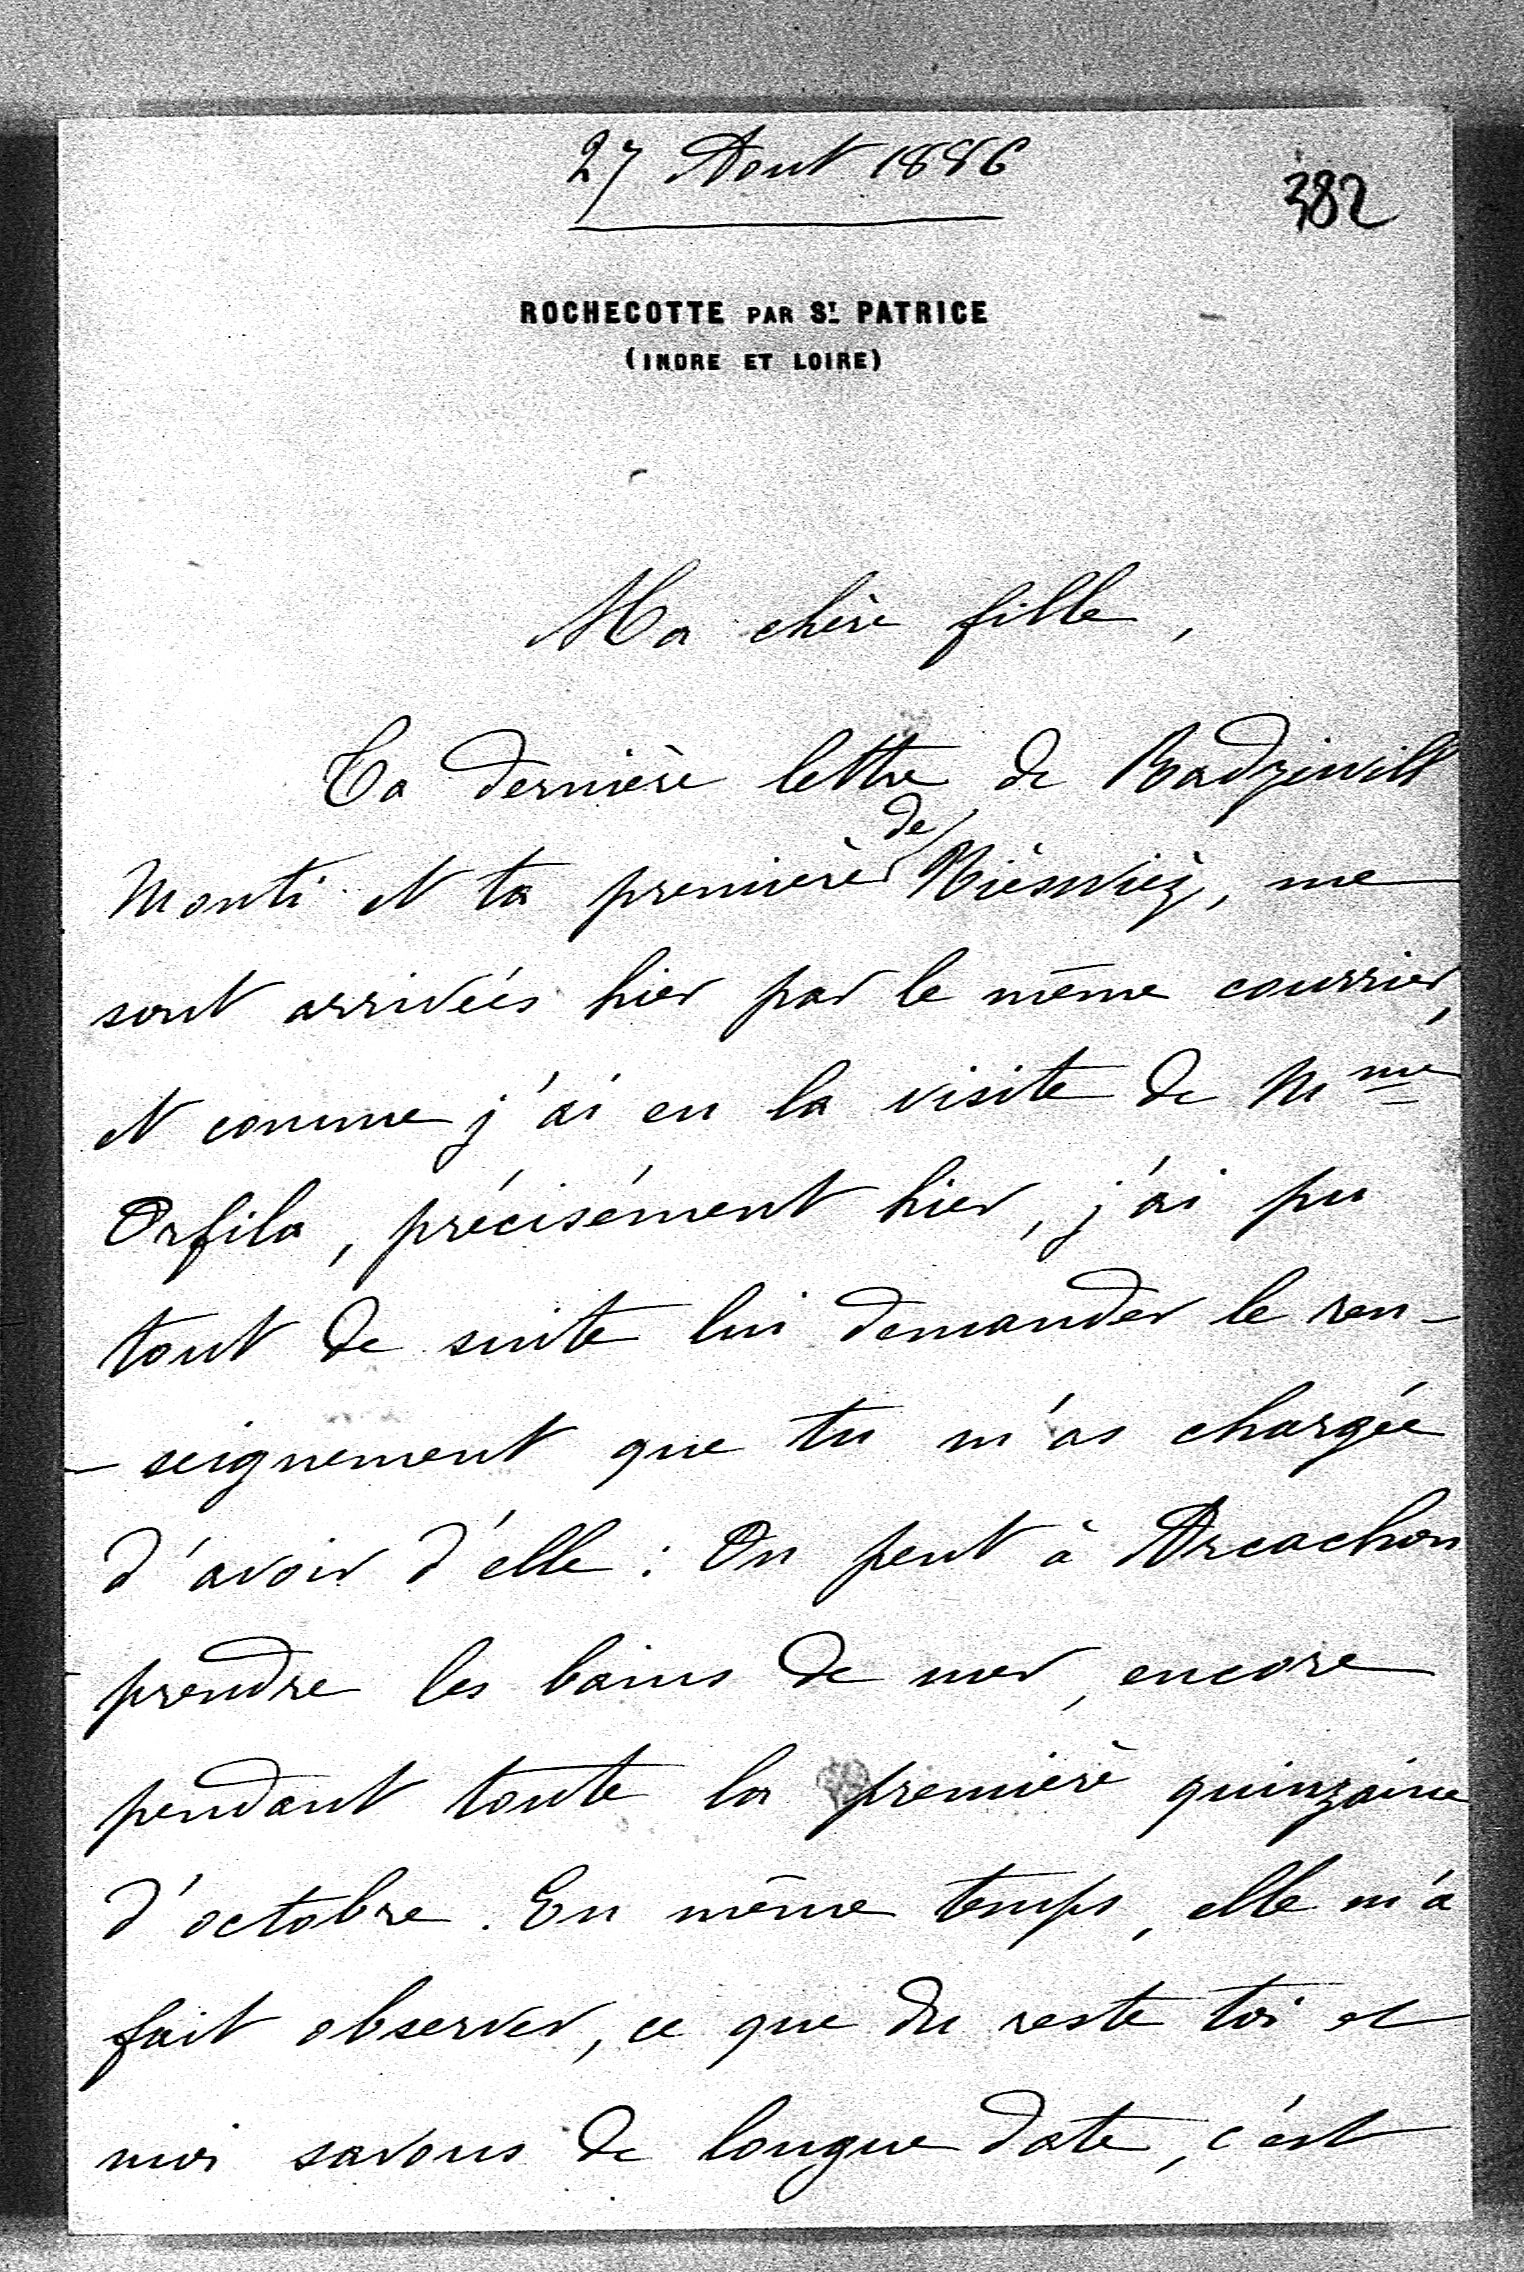 27 Aout 1886
382
ROCHECOTTE PAR ST PATRICE
(INDRE ET LOIRE)
Ma chère fille,
Ta dernière lettre de Radziwill
Monti et ta première de Niéswiéz, me
sont arrivées hier par le même courrier,
et comme j'ai eu la visite de Mme
Orfila, précisément hier, j'ai pu
tout de suite lui demander le ren-
- seignement que tu m'as chargée
d'avoir d'elle : On peut à Arcachon
prendre les bains de mer, encore
pendant toute la première quinzaine
d'octobre. En même temps, elle m'a
fait observer, ce que du reste toi et
moi savons de longue date, c'est